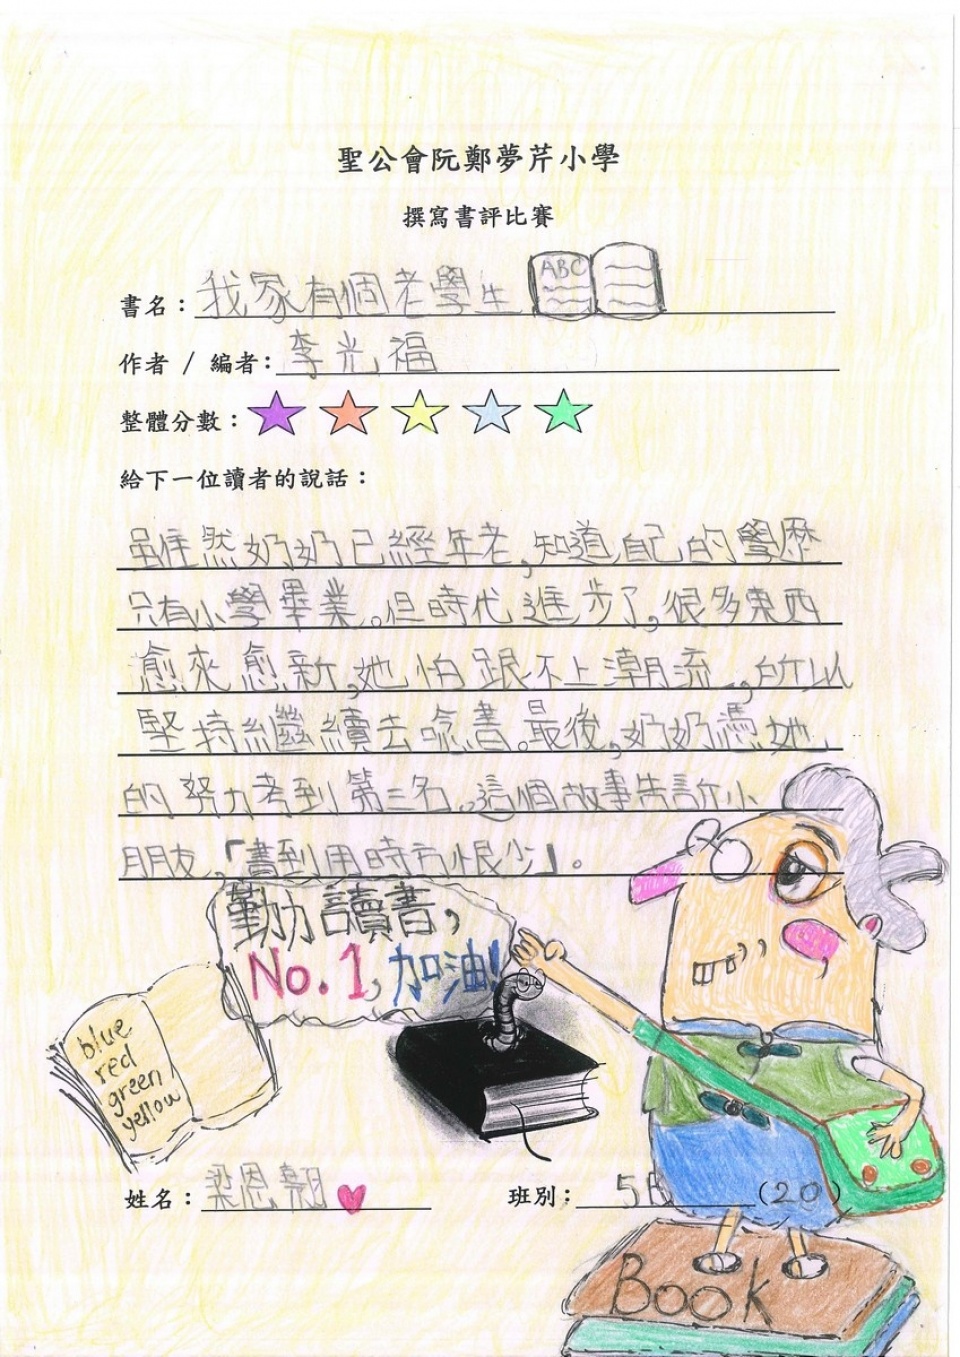 聖公會阮鄭夢芹小學
撰寫書評比賽
書名：我家有個老學生
ABC
作者 / 編者：李光福
整體分數：
給下一位讀者的說話：
雖然奶奶已經年老，知道自己的學歷
只有小學畢業。但時代進步了，很多東西
愈來愈新，她怕跟不上潮流，所以
堅持繼續去唸書。最後，奶奶憑她
的努力考到第三名。這個故事告訴小
朋友，「書到用時方恨少」。
勤力讀書，
No.1，加油！
blue
red
green
yellow
姓名：梁恩翹
班別：5B (20)
Book